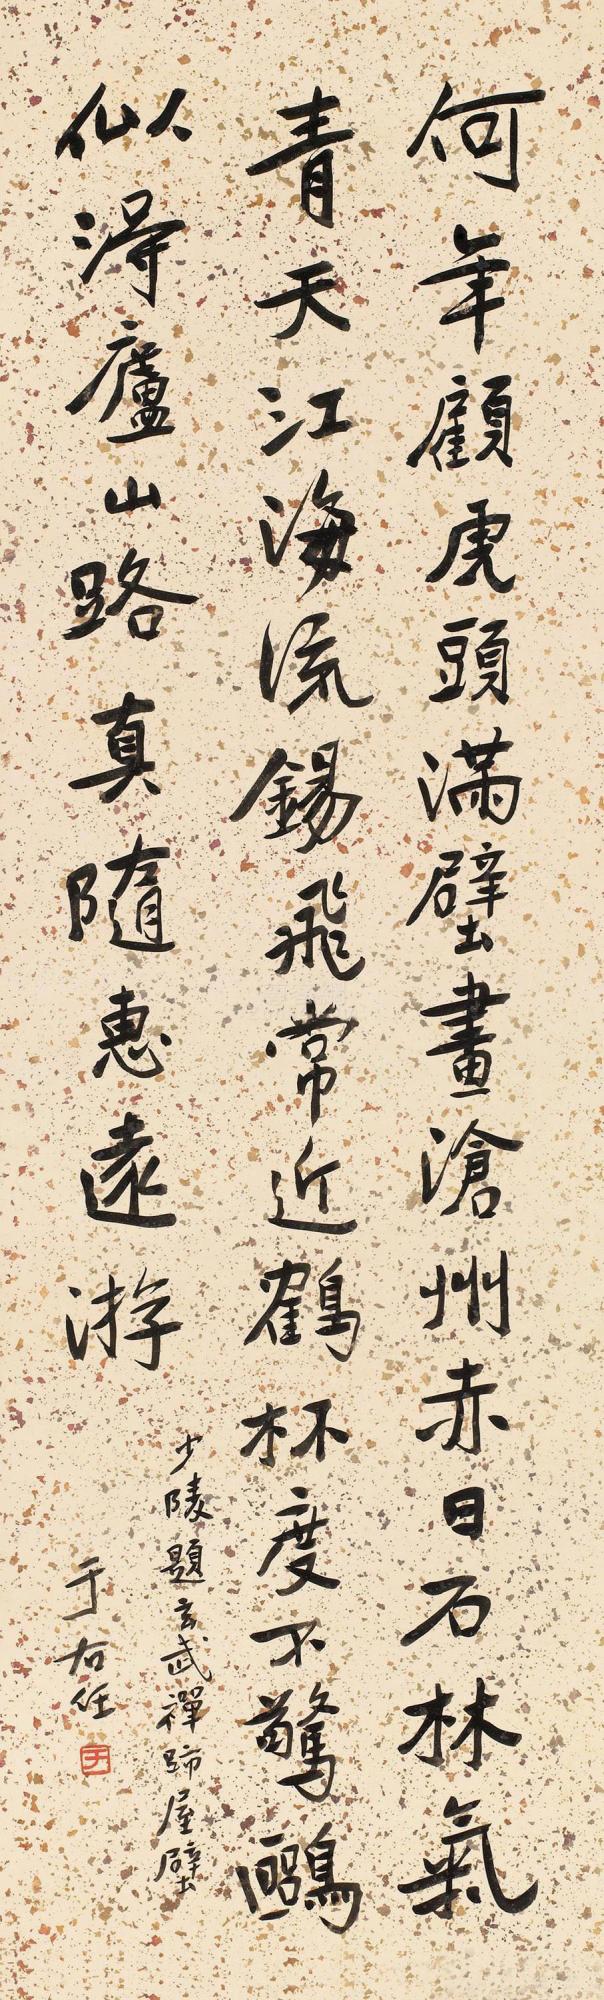 何年顧虎頭滿壁畫滄州赤日石林氣
青天江海流錫飛常近鶴杯度不驚鷗
似得廬山路真隨惠遠游
少陵題玄武禪師屋壁
于右任